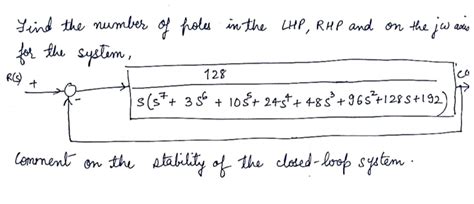 Find the number of poles in the LHP, RHP and on the jω axis
for the system,
R(s) + 128 C(s)
s(s⁷ + 3s⁶ + 10s⁵ + 24s⁴ + 48s³ + 96s² + 128s + 192)
-
Comment on the stability of the closed-loop system.